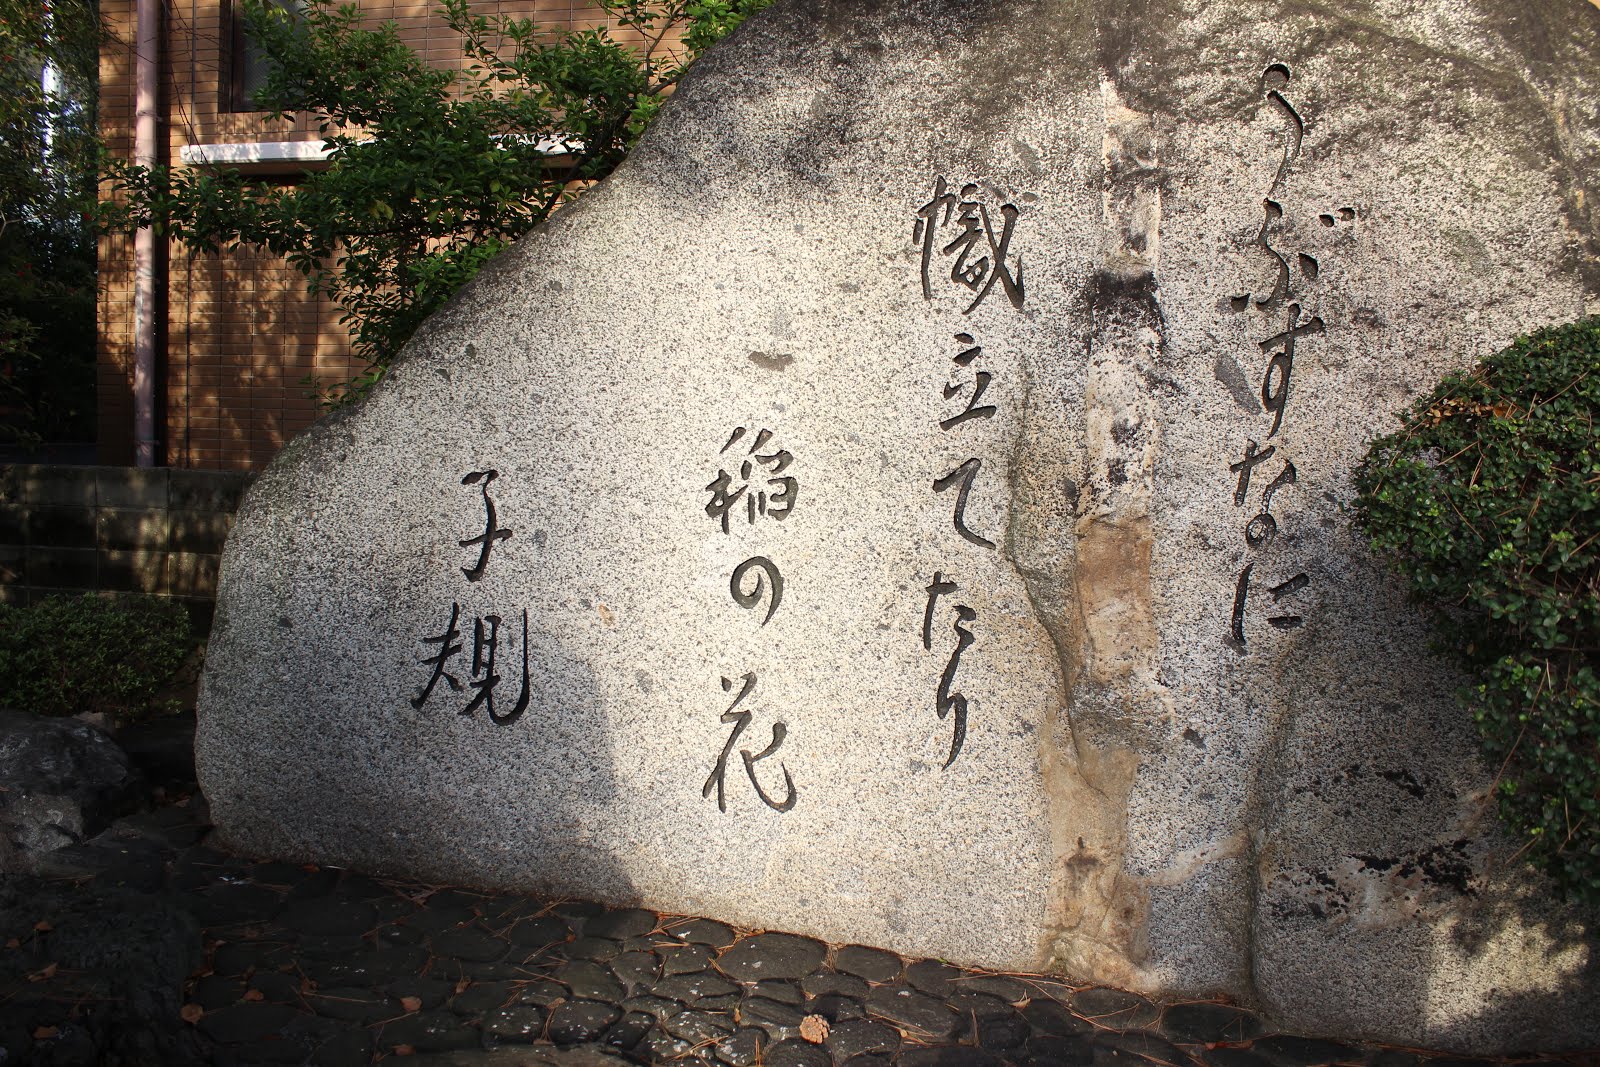 うぶすなに
幟立てたり
稲の花
子規